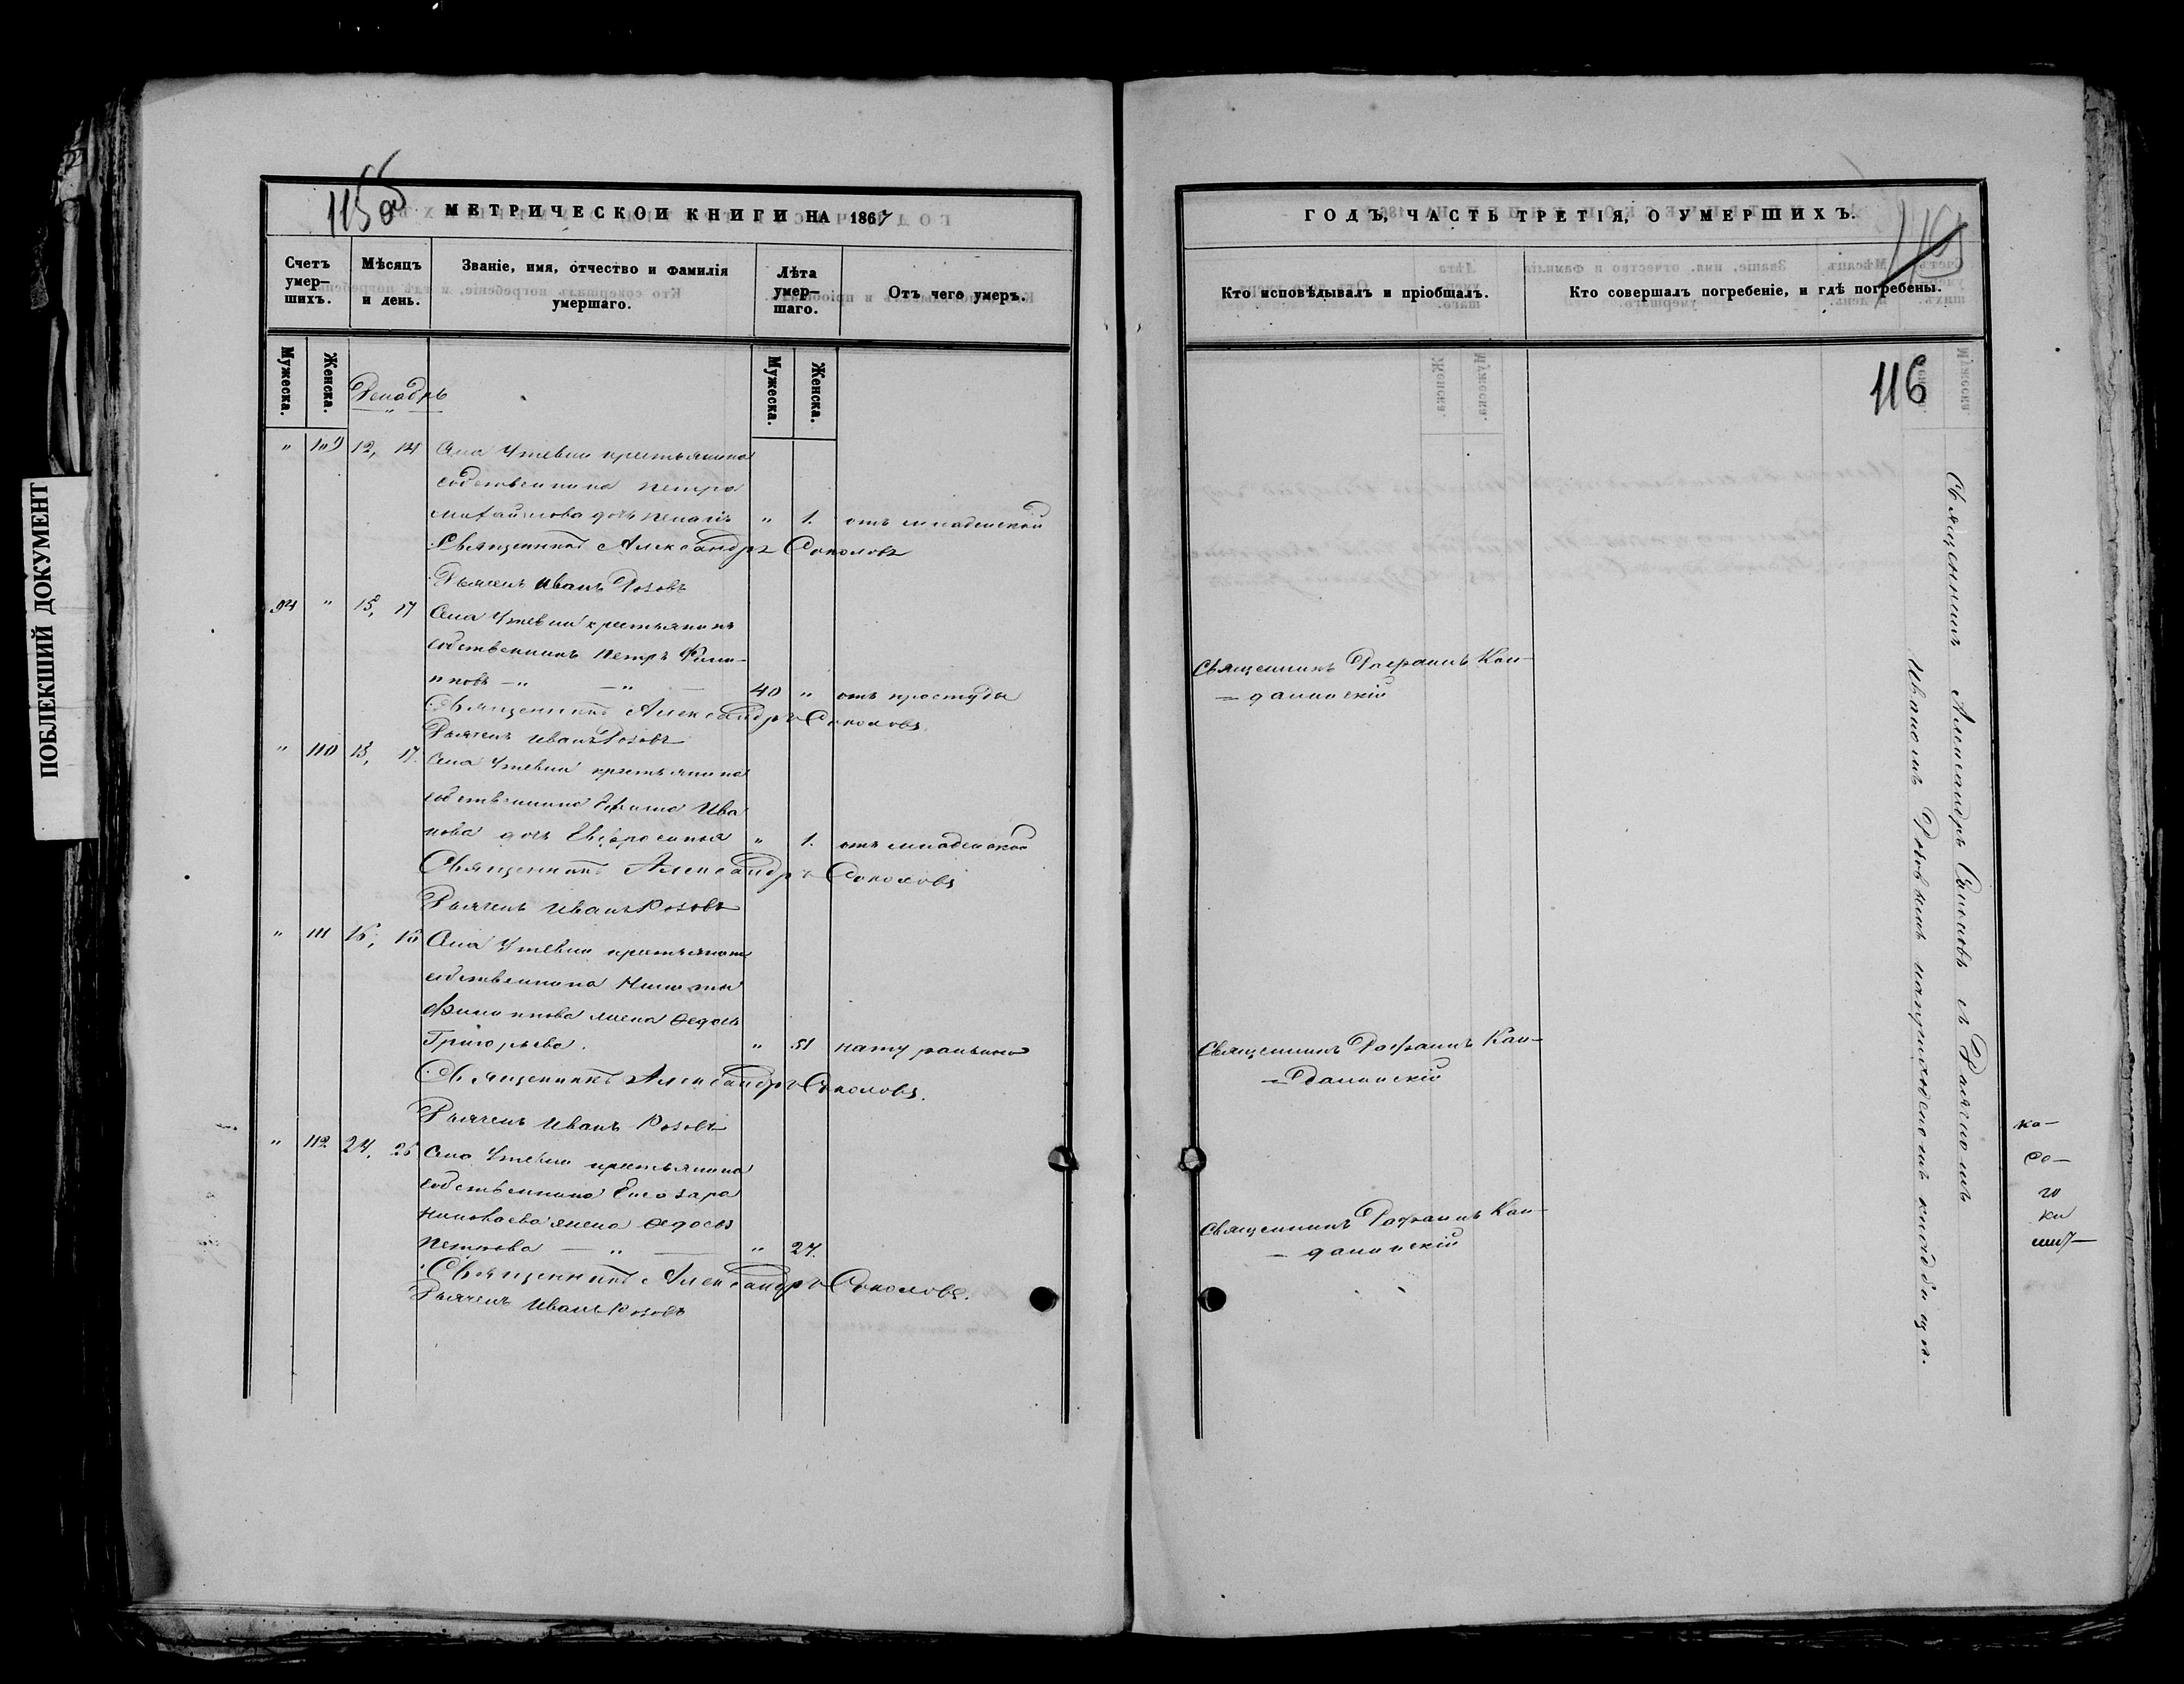 ПОБЛЕКШИЙ ДОКУМЕНТ
115об
МЕТРИЧЕСКОЙ КНИГИ НА 1867
Счетъ умер-шихъ.
Мѣсяцъ и день.
Званіе, имя, отчество и фамилія умершаго.
Лѣта умер-шаго.
Отъ чего умеръ.
Мужеска.
Женска.
Мужеска.
Женска.
Декабрь
" 109 12, 14 Села Утевки крестьянина
собственника Петра
Михайлова дочь " 1. отъ младенской
Священникъ Александръ Соколовъ
Дьячекъ Иванъ Розовъ
94 " 15, 17 Села Утевки крестьянинъ
собственникъ Петръ Фили-
пповъ —"— —"— 40 " отъ простуды
Священникъ Александръ Соколовъ
Дьячекъ Иванъ Розовъ
" 110 15, 17. Села Утевки крестьянина
собственника Ива
нова дочь Евфросинья " 1. отъ младенской
Священникъ Александръ Соколовъ
Дьячекъ Иванъ Розовъ
" 111 16, 18 Села Утевки крестьянина
собственника Никиты
Филиппова жена Федосья
Григорьева. " 51 натурально
Священникъ Александръ Соколовъ.
Дьячекъ Иванъ Розовъ
" 112 24, 26 Села Утевки крестьянина
собственника Елеазара
Николаева жена Федосья
Петрова — " — " 27.
Священникъ Александръ Соколовъ.
Дьячекъ Иванъ Розовъ
ГОДЪ, ЧАСТЬ ТРЕТІЯ, О УМЕРШИХЪ.
Кто исповѣдывалъ и пріобщалъ.
Кто совершалъ погребеніе, и гдѣ погребены.
116
Священникъ Рафаилъ Кан-
=далинскій
Священникъ Рафаилъ Кан-
=далинскій
Священникъ Рафаилъ Кан-
=далинскій
Священникъ Александръ Соколовъ съ Дьячкомъ
Иваномъ Розовымъ на приходскомъ кладбищѣ.
ка-
се-
го
ки